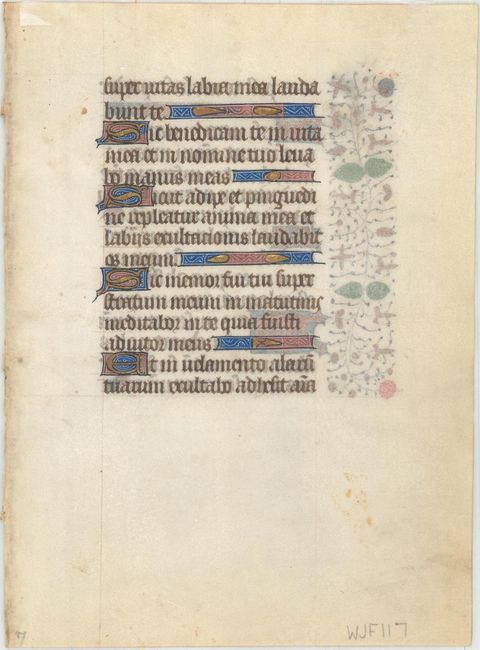 super uitas labia mea lauda
bunt te
Sic benedicam te in uita
mea et in nomine tuo leua
bo manus meas
Sicut adipe et pinguedi
ne repleatur anima mea et
labijs exultacionis laudabit
os meum
Sic memor fui tui super
stratum meum in matutinis
meditabor in te quia fuisti
adiutor meus
Et in uelamento alarũ
tuarum exultabo adhesit aĩa
7
WJF117